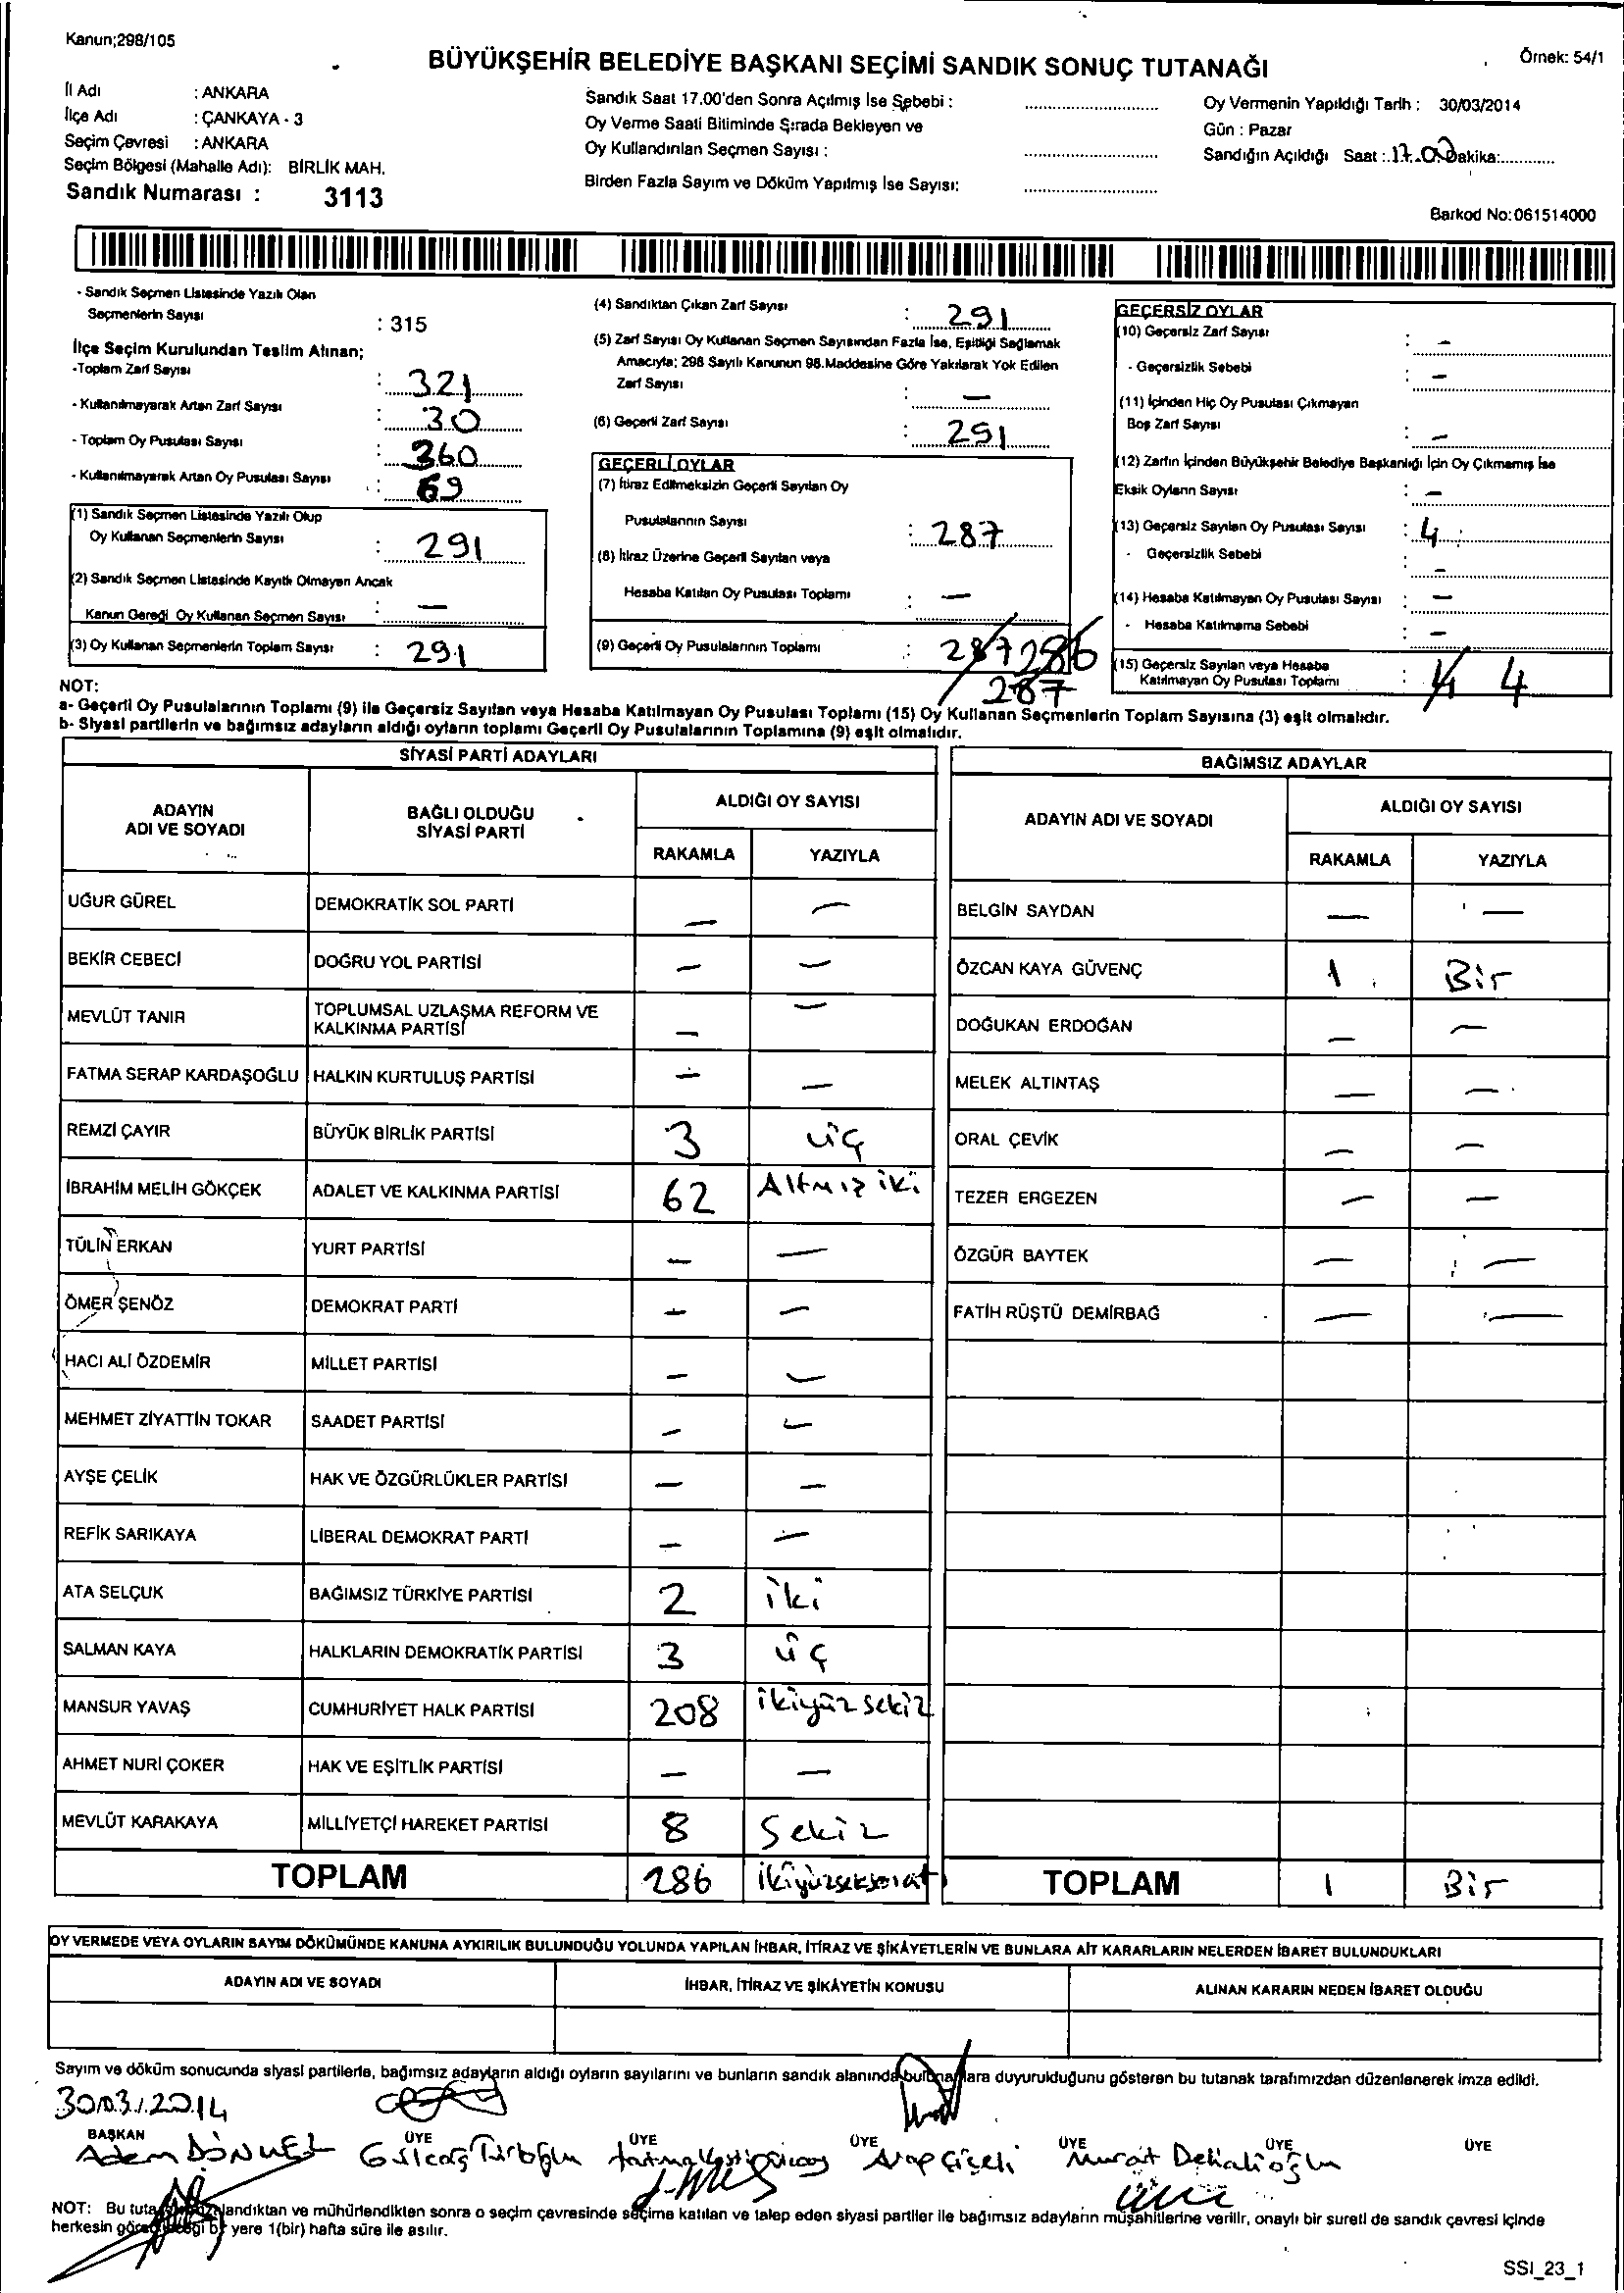 Kanun;298/105
BÜYÜKŞEHİR BELEDİYE BAŞKANI SEÇİMİ SANDIK SONUÇ TUTANAĞI
Örnek: 54/1
İl Adı : ANKARA
İlçe Adı : ÇANKAYA - 3
Seçim Çevresi : ANKARA
Seçim Bölgesi (Mahalle Adı): BİRLİK MAH.
Sandık Numarası : 3113
Sandık Saat 17.00'den Sonra Açılmış İse Sebebi : ..........
Oy Verme Saati Bitiminde Sırada Bekleyen ve
Oy Kullandırılan Seçmen Sayısı : ..........
Birden Fazla Sayım ve Döküm Yapılmış İse Sayısı: ..........
Oy Vermenin Yapıldığı Tarih : 30/03/2014
Gün : Pazar
Sandığın Açıldığı Saat : 17.00 Dakika:..........
Barkod No:061514000
- Sandık Seçmen Listesinde Yazılı Olan
Seçmenlerin Sayısı : 315
İlçe Seçim Kurulundan Teslim Alınan;
-Toplam Zarf Sayısı : 321
- Kullanılmayarak Artan Zarf Sayısı : 30
- Toplam Oy Pusulası Sayısı : 360
- Kullanılmayarak Artan Oy Pusulası Sayısı : 69
(1) Sandık Seçmen Listesinde Yazılı Olup
Oy Kullanan Seçmenlerin Sayısı : 291
(2) Sandık Seçmen Listesinde Kayıtlı Olmayan Ancak
Kanun Gereği Oy Kullanan Seçmen Sayısı : —
(3) Oy Kullanan Seçmenlerin Toplam Sayısı : 291
(4) Sandıktan Çıkan Zarf Sayısı : 291
(5) Zarf Sayısı Oy Kullanan Seçmen Sayısından Fazla İse, Eşitliği Sağlamak
Amacıyla; 298 Sayılı Kanunun 98.Maddesine Göre Yakılarak Yok Edilen
Zarf Sayısı : —
(6) Geçerli Zarf Sayısı : 291
GEÇERLİ OYLAR
(7) İtiraz Edilmeksizin Geçerli Sayılan Oy
Pusulalarının Sayısı : 287
(8) İtiraz Üzerine Geçerli Sayılan veya
Hesaba Katılan Oy Pusulası Toplamı : —
(9) Geçerli Oy Pusulalarının Toplamı : 287 286
287
GEÇERSİZ OYLAR
(10) Geçersiz Zarf Sayısı : —
- Geçersizlik Sebebi : —
(11) İçinden Hiç Oy Pusulası Çıkmayan
Boş Zarf Sayısı : —
(12) Zarfın İçinden Büyükşehir Belediye Başkanlığı İçin Oy Çıkmamış İse
Eksik Oyların Sayısı : —
(13) Geçersiz Sayılan Oy Pusulası Sayısı : 4
- Geçersizlik Sebebi —
(14) Hesaba Katılmayan Oy Pusulası Sayısı : —
- Hesaba Katılmama Sebebi : —
(15) Geçersiz Sayılan veya Hesaba
Katılmayan Oy Pusulası Toplamı : 4 4
NOT:
a- Geçerli Oy Pusulalarının Toplamı (9) ile Geçersiz Sayılan veya Hesaba Katılmayan Oy Pusulası Toplamı (15) Oy Kullanan Seçmenlerin Toplam Sayısına (3) eşit olmalıdır.
b- Siyasi partilerin ve bağımsız adayların aldığı oyların toplamı Geçerli Oy Pusulalarının Toplamına (9) eşit olmalıdır.
SİYASİ PARTİ ADAYLARI
ADAYIN
ADI VE SOYADI
BAĞLI OLDUĞU
SİYASİ PARTİ
ALDIĞI OY SAYISI
RAKAMLA YAZIYLA
UĞUR GÜREL DEMOKRATİK SOL PARTİ — —
BEKİR CEBECİ DOĞRU YOL PARTİSİ — —
MEVLÜT TANIR TOPLUMSAL UZLAŞMA REFORM VE
KALKINMA PARTİSİ — —
FATMA SERAP KARDAŞOĞLU HALKIN KURTULUŞ PARTİSİ — —
REMZİ ÇAYIR BÜYÜK BİRLİK PARTİSİ 3 üç
İBRAHİM MELİH GÖKÇEK ADALET VE KALKINMA PARTİSİ 62 Altmış iki
TÜLİN ERKAN YURT PARTİSİ — —
ÖMER ŞENÖZ DEMOKRAT PARTİ — —
HACI ALİ ÖZDEMİR MİLLET PARTİSİ — —
MEHMET ZİYATTİN TOKAR SAADET PARTİSİ — —
AYŞE ÇELİK HAK VE ÖZGÜRLÜKLER PARTİSİ — —
REFİK SARIKAYA LİBERAL DEMOKRAT PARTİ — —
ATA SELÇUK BAĞIMSIZ TÜRKİYE PARTİSİ 2 iki
SALMAN KAYA HALKLARIN DEMOKRATİK PARTİSİ 3 üç
MANSUR YAVAŞ CUMHURİYET HALK PARTİSİ 208 ikiyüz sekiz
AHMET NURİ ÇOKER HAK VE EŞİTLİK PARTİSİ — —
MEVLÜT KARAKAYA MİLLİYETÇİ HAREKET PARTİSİ 8 Sekiz
TOPLAM 286 ikiyüzseksenaltı
BAĞIMSIZ ADAYLAR
ADAYIN ADI VE SOYADI
ALDIĞI OY SAYISI
RAKAMLA YAZIYLA
BELGİN SAYDAN — —
ÖZCAN KAYA GÜVENÇ 1 Bir
DOĞUKAN ERDOĞAN — —
MELEK ALTINTAŞ — —
ORAL ÇEVİK — —
TEZER ERGEZEN — —
ÖZGÜR BAYTEK — —
FATİH RÜŞTÜ DEMİRBAĞ — —
TOPLAM 1 Bir
OY VERMEDE VEYA OYLARIN SAYIM DÖKÜMÜNDE KANUNA AYKIRILIK BULUNDUĞU YOLUNDA YAPILAN İHBAR, İTİRAZ VE ŞİKÂYETLERİN VE BUNLARA AİT KARARLARIN NELERDEN İBARET BULUNDUKLARI
ADAYIN ADI VE SOYADI
İHBAR, İTİRAZ VE ŞİKÂYETİN KONUSU
ALINAN KARARIN NEDEN İBARET OLDUĞU
Sayım ve döküm sonucunda siyasi partilerle, bağımsız adayların aldığı oyların sayılarını ve bunların sandık alanında bulunanlara duyurulduğunu gösteren bu tutanak tarafımızdan düzenlenerek imza edildi.
30.03.2014
BAŞKAN ÜYE ÜYE ÜYE ÜYE ÜYE ÜYE
Adem DÖNMEZ Fatma Arap Çiçeli Murat Delialioğlu
NOT: Bu andıktan ve mühürlendikten sonra o seçim çevresinde seçime katılan ve talep eden siyasi partiler ile bağımsız adayların müşahitlerine verilir, onaylı bir sureti de sandık çevresi içinde
herkesin göreceği bir yere 1(bir) hafta süre ile asılır.
SSI_23_1